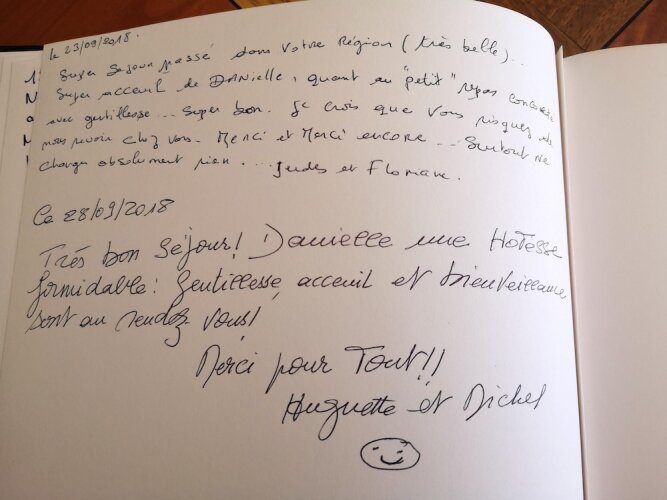 le 23/09/2018.
Super Sejour passé dans Votre Région (très belle)...
Super acceuil de DANielle, quant au "petit" repas concocté
avec gentillesse... Super bon. Je crois que vous risquez de
nous revoir chez vous. Merci et Merci encore... Surtout ne
changer absolument rien.... Judes et Floriane.
Le 28/09/2018
Très bon Séjour! Danielle une Hotesse
formidable: Gentillesse, acceuil et bienveillance
sont au rendez vous!
Merci pour Tout!!
Huguette et Michel